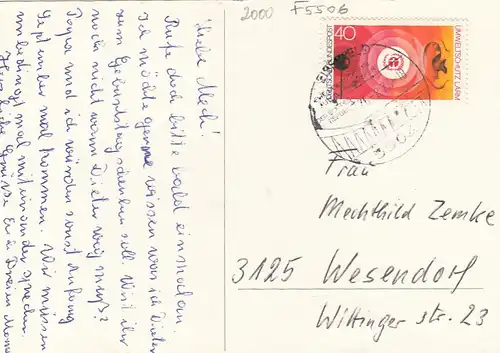 2000 F5506
Liebe Mechi!
Rufe doch bitte bald einmal an.
Ich möchte gerne wissen was ich Dieter
zum Geburtstag schenken soll. Wißt ihr
noch nicht wann Dieter weg muß?
Papa und ich würden sonst Anfang
September mal kommen. Wir müssen
unbedingt mal miteinander sprechen.
Herzliche Grüsse
DEUTSCHE BUNDESPOST
40
UMWELTSCHUTZ: LÄRM
Frau
Mechthild Zemke
3125 Wesendorf
Wittinger str. 23